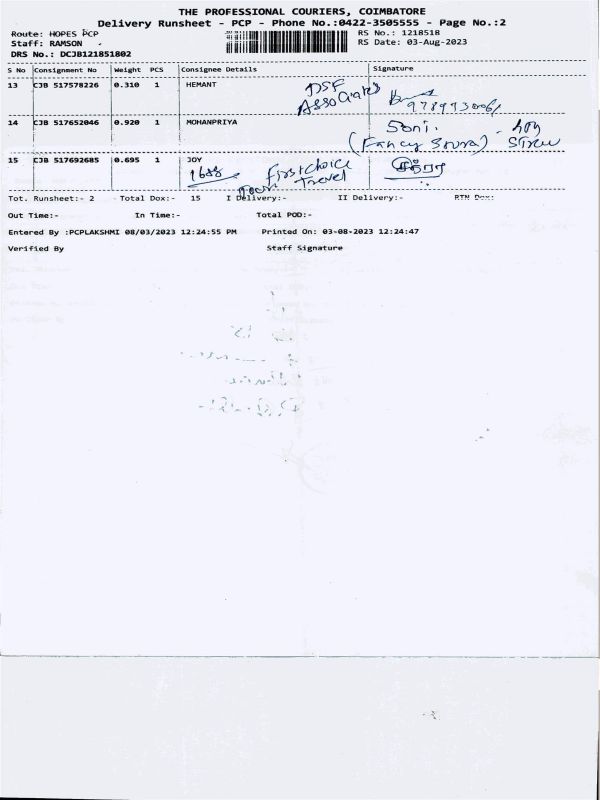 THE PROFESSIONAL COURIERS, COIMBATORE
Delivery Runsheet - PCP - Phone No.:0422-3505555 - Page No.:2
Route: HOPES PCP
Staff: RAMSON
DRS No.: DCJB121851802
RS No.: 1218518
RS Date: 03-Aug-2023
S No Consignment No Weight PCS Consignee Details Signature
13 CJB 517578226 0.310 1 HEMANT DSF
Associates
14 CJB 517652046 0.920 1 MOHANPRIYA Soni.
(Fancy
15 CJB 517692685 0.695 1 JOY
1688 First choice
Travel
Tot. Runsheet:- 2 Total Dox:- 15 I Delivery:- II Delivery:- RTN Dox:
Out Time:- In Time:- Total POD:-
Entered By :PCPLAKSHMI 08/03/2023 12:24:55 PM Printed On: 03-08-2023 12:24:47
Verified By Staff Signature